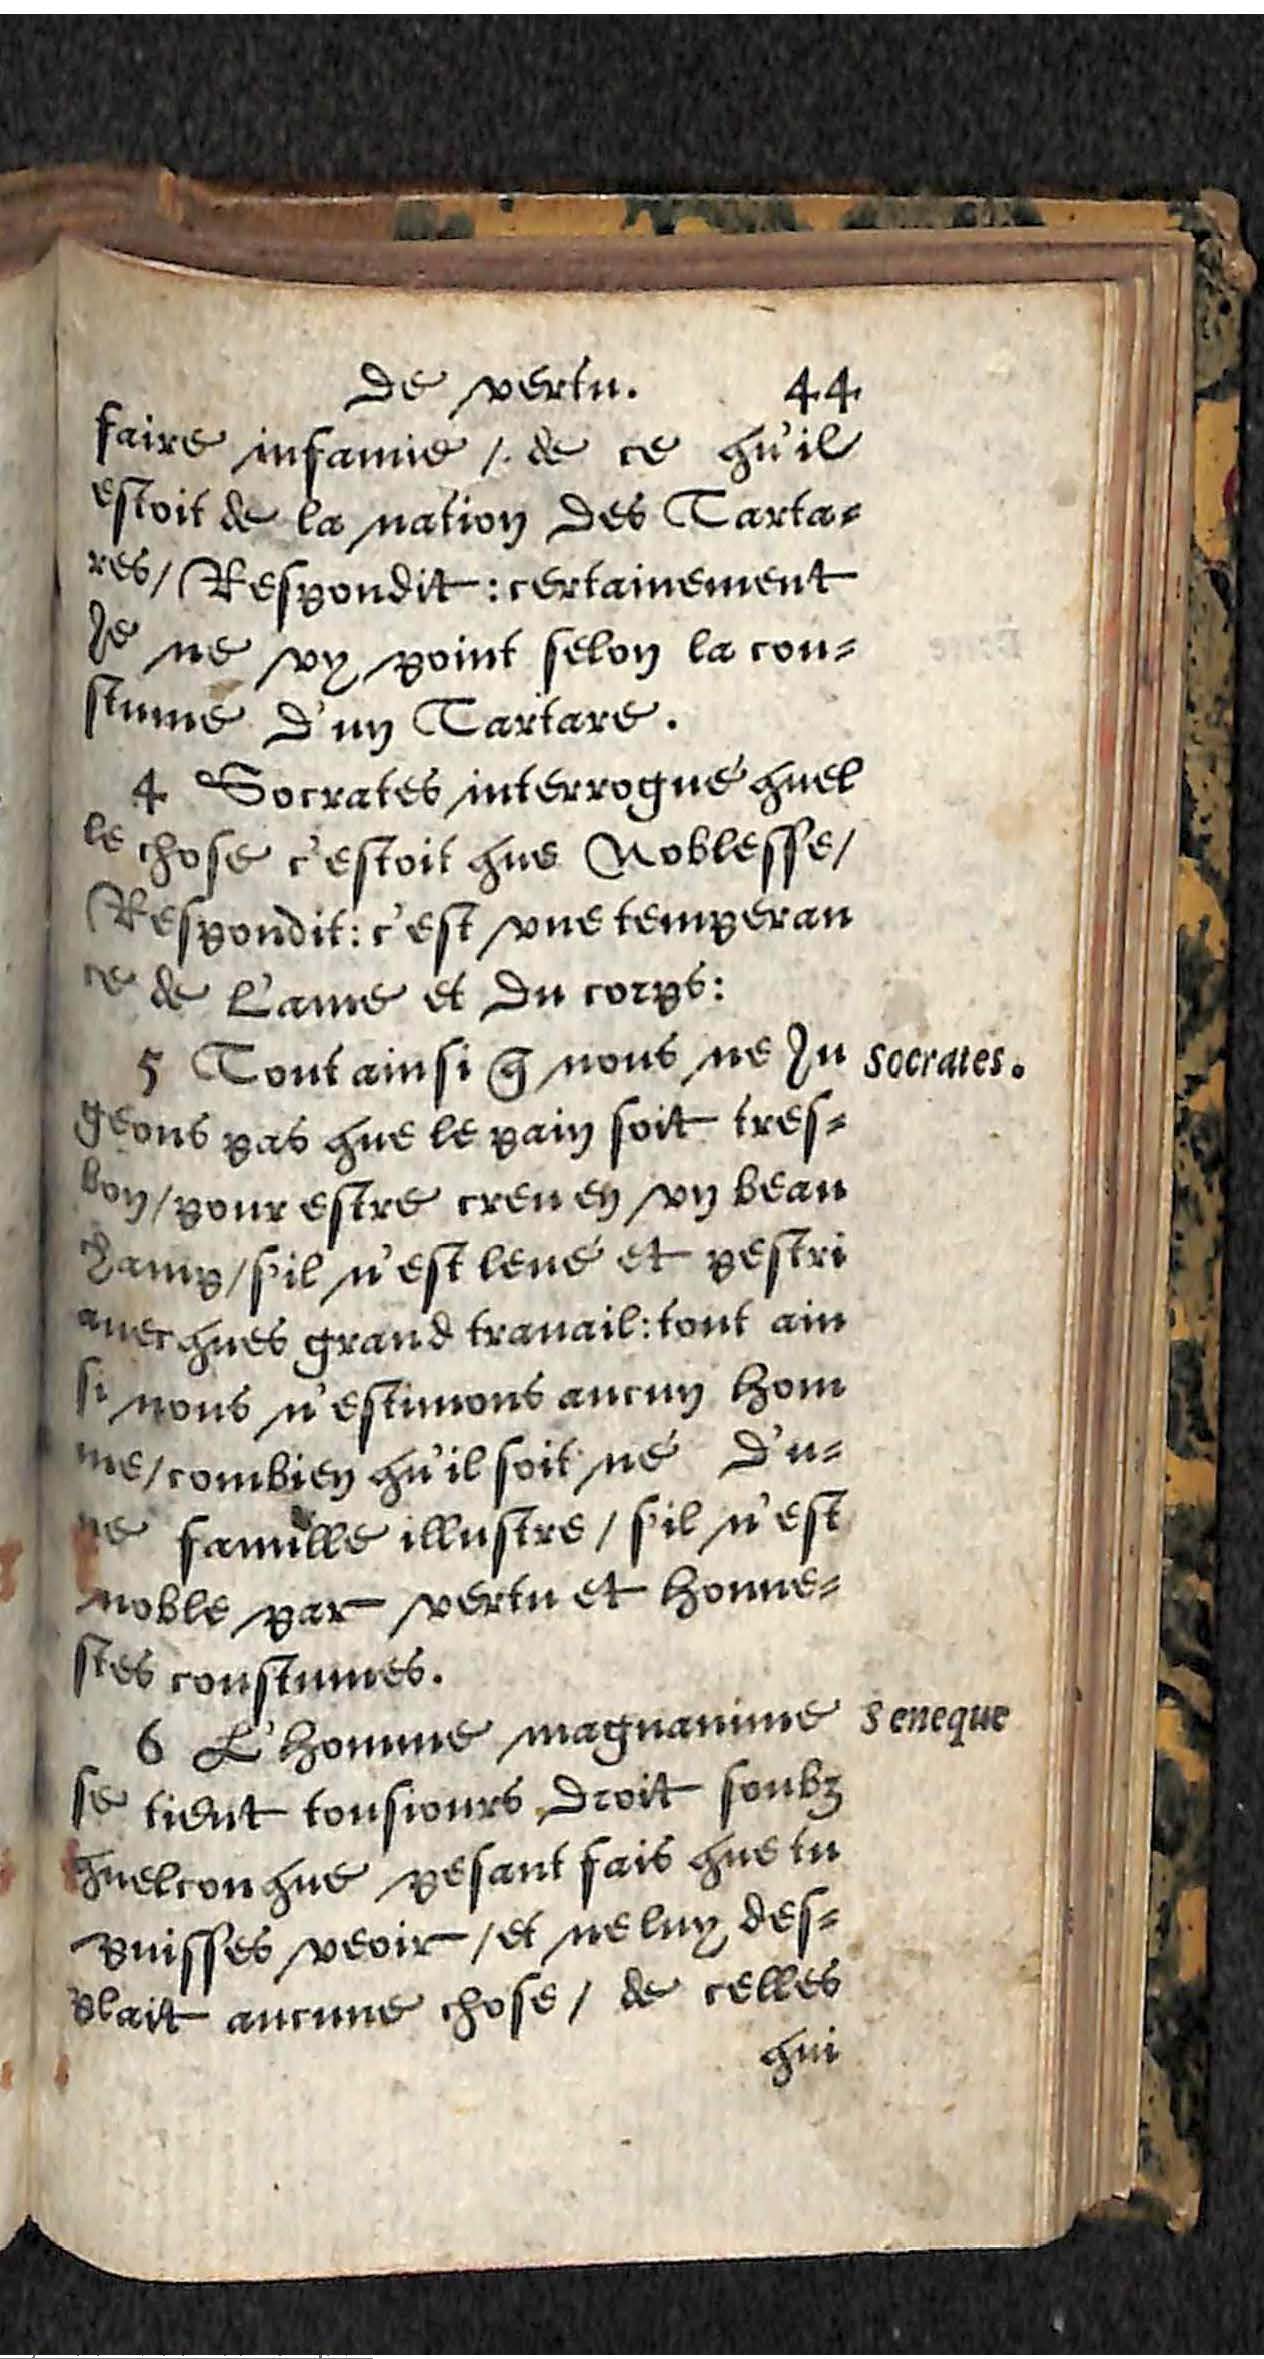 De vertu. 44
faire infamie /. de ce qu'il
estoit de la nation des Tarta=
res/ Respondit : certainement
Je ne vy point selon la cou=
stume d'un Tartare.
4 Socrates interrogué quel
le chose c'estoit que Noblesse/
Respondit: c'est vne temperan
ce de L'ame et du corps:
5 Tout ainsi q̃ nous ne Ju
geons pas que le pain soit tres=
bon/ pour estre creu en vn beau
champ/ s'il n'est leué et pestri
auecques grand trauail: tout ain
si nous n'estimons aucun hom
me/ combien qu'il soit né d'u=
ne famille illustre / s'il n'est
noble par vertu et honne=
stes coustumes.
6 L'homme magnanime
se tient tousiours droit soubz
quelconque pesant fais que tu
puisses veoir / et ne luy des=
plait aucune chose / de celles
qui
Socrates.
Seneque